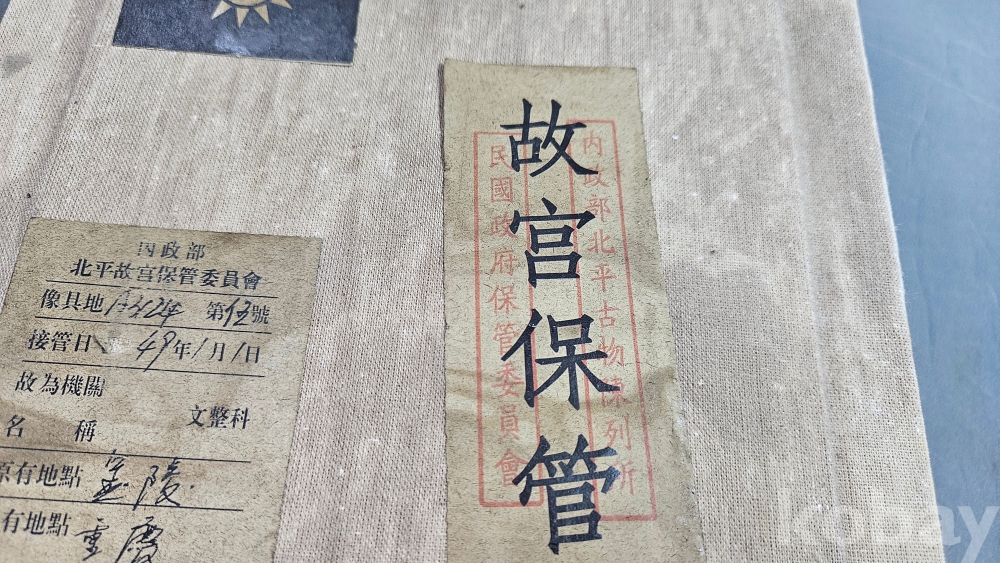 內政部
北平故宮保管委員會
像具地 第伍號
接管日 49年1月1日
故為機關
文整科
名 稱
原有地點 金陵
有地點 重慶
故宮保管
內政部北平古物陳列所
民國政府保管委員會
kobay